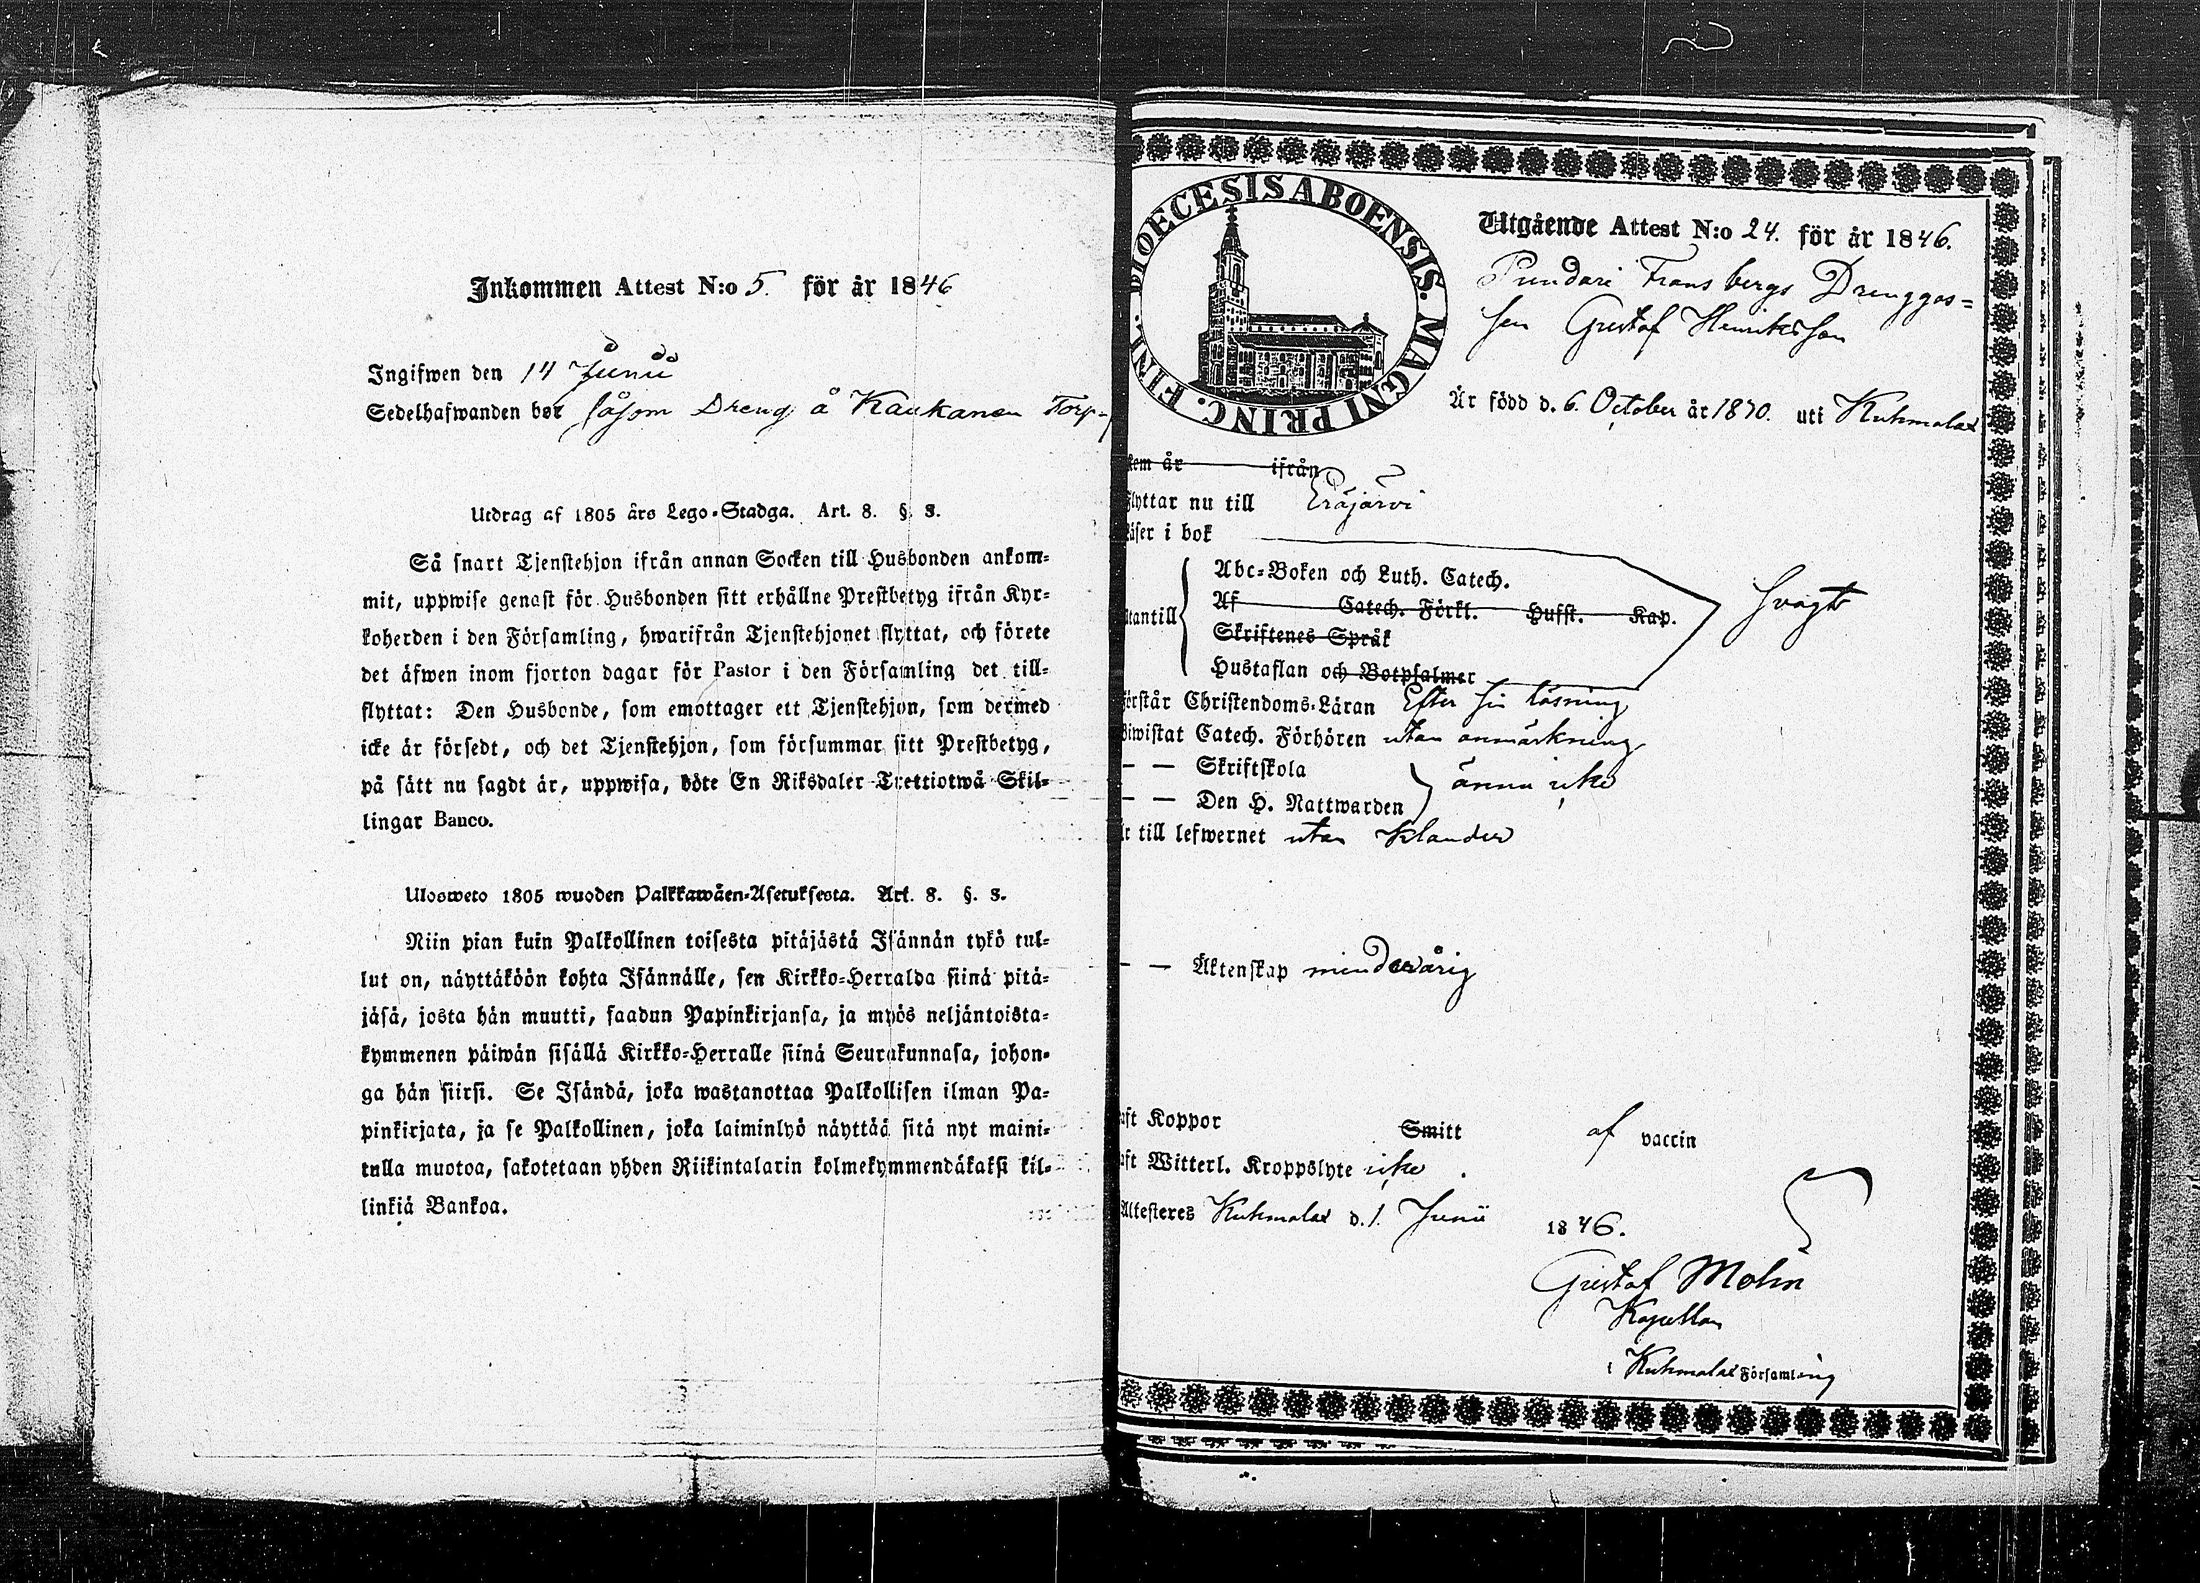 Inkommen Attest N:o 5. för år 1846
Ingifwen den 14 Junii
Sedelhafwanden bor såsom Dreng å Kaukanen Torp
Utdrag af 1805 års Lego-Stadga. Art. 8. §. 3.
Så snart Tjenstehjon ifrån annan Socken till Husbonden ankom-
mit, uppwise genast för Husbonden sitt erhållne Prestbetyg ifrån Kyr-
koherden i den Församling, hwarifrån Tjenstehjonet flyttat, och förete
det äfwen inom fjorton dagar för Pastor i den Församling det till-
flyttat: Den Husbonde, som emottager ett Tjenstehjon, som dermed
icke är försedt, och det Tjenstehjon, som försummar sitt Prestbetyg,
på sätt nu sagdt är, uppwisa, böte En Riksdaler Trettiotwå Skil-
lingar Banco.
Ulosweto 1805 wuoden Palkkawäen-Asetuksesta. Art. 8. §. 3.
Niin pian kuin Palkollinen toisesta pitäjästä Isännän tykö tul-
lut on, näyttäköön kohta Isännälle, sen Kirkko-Herralda siinä pitä-
jäsä, josta hän muutti, saadun Papinkirjansa, ja myös neljäntoista-
kymmenen päiwän sisällä Kirkko-Herralle siinä Seurakunnasa, johon-
ga hän siirsi. Se Isändä, joka wastanottaa Palkollisen ilman Pa-
pinkirjata, ja se Palkollinen, joka laiminlyö näyttää sitä nyt maini-
tulla muotoa, sakotetaan yhden Riikintalarin kolmekymmendäkaksi kil-
linkiä Bankoa.
DIOECESIS ABOENSIS. MAGNI PRINC. FINL.
Utgående Attest N:o 24. för år 1846.
Pundari Frans bergs Drenggos=
sen Gustaf Henriksson
Är född d. 6. October år 1830. uti Kuhmalax
kom år ifrån
flyttar nu till Eräjärvi
läser i bok
utantill
Abc-Boken och Luth. Catech.
Af Catech. Förkl. Hufst. Kap.
Skriftenes Språk
Hustaflan och Botpsalmer
svagt
förstår Christendoms-Läran Efter sin läsning
biwistat Catech. Förhören utan anmärkning
— — Skriftskola
— — Den H. Nattwarden
ännu icke
är till lefwernet utan klander
— — Äktenskap minderårig
haft Koppor Smitt af vaccin
haft Witterl. Kroppslyte icke.
Attesteres Kuhmalax d. 1. Junii 1846.
Gustaf Molin
Kapellan
i Kuhmalax Församling